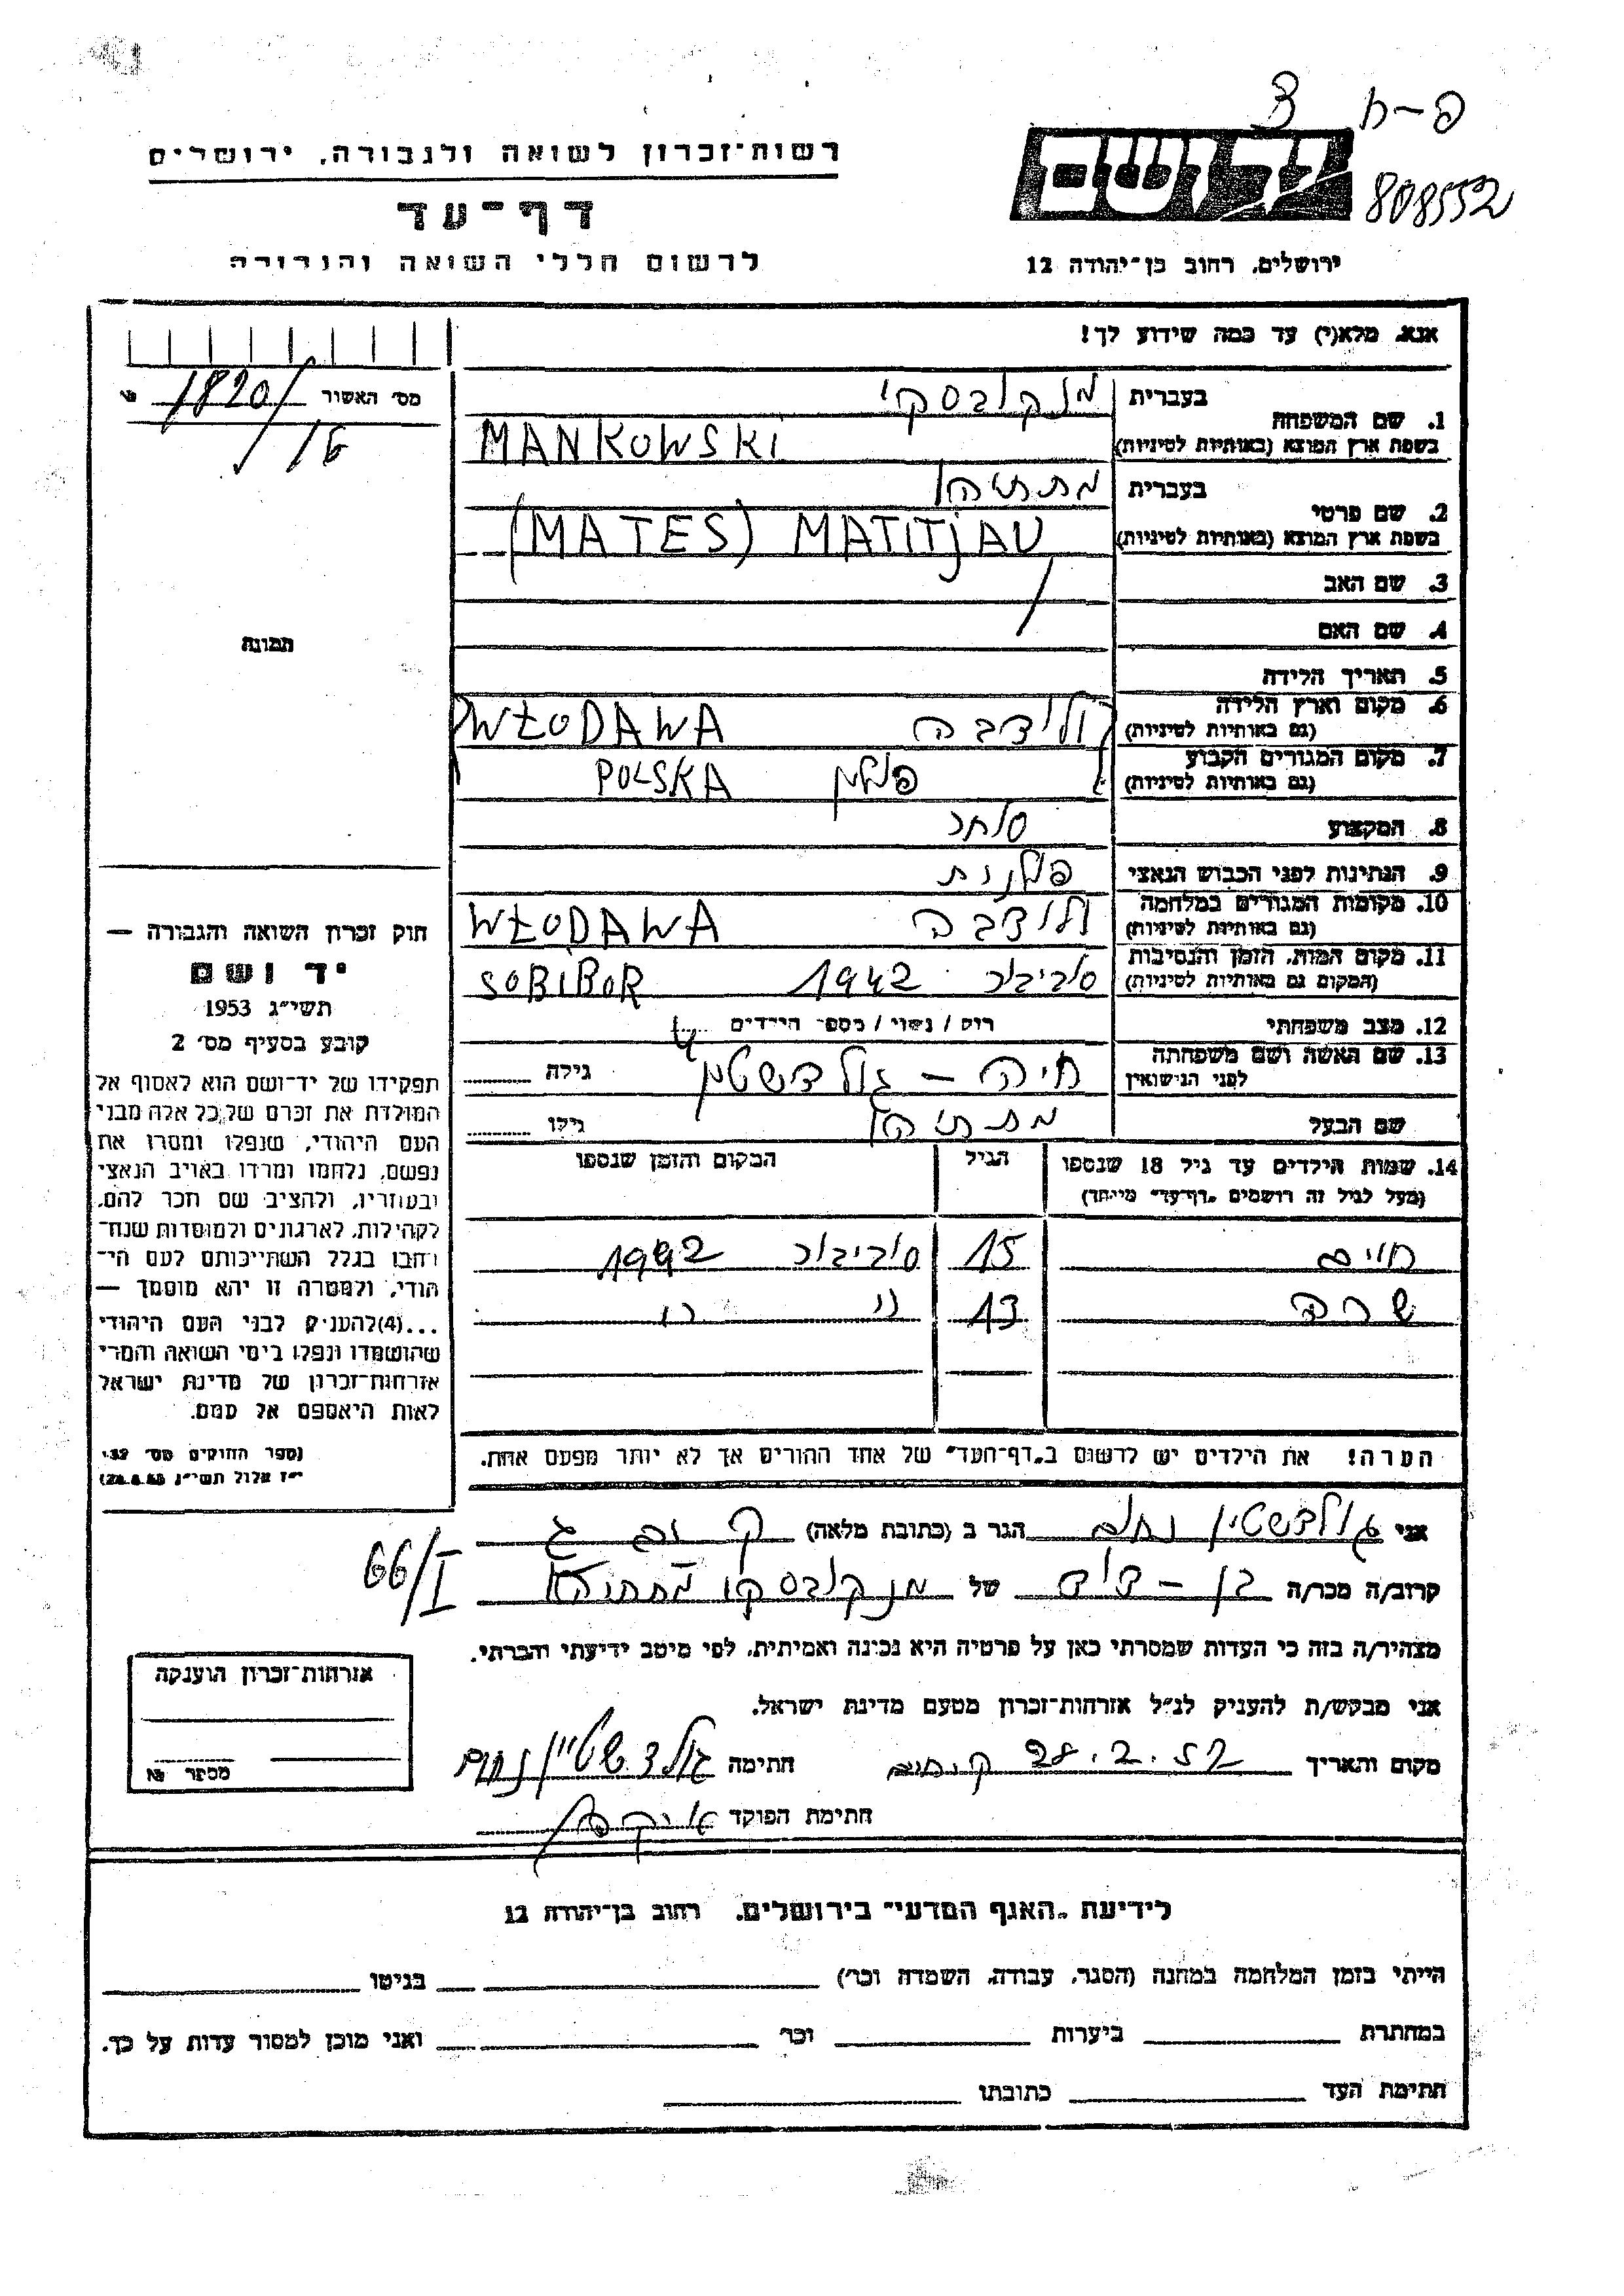 פ-ח 3
יד ושם
808552
רשות־זכרון לשואה ולגבורה, ירושלים
דף־עד
לרשום חללי השואה והגבורה
ירושלים, רחוב בן־יהודה 12
אנא, מלא(י) עד כמה שידוע לך!
מס׳ האשור 1820/
16
תמונה
1. שם המשפחה בעברית מנקובסקי
בשפת ארץ המוצא (באותיות לטיניות) MANKOWSKI
2. שם פרטי בעברית מתתיהו
בשפת ארץ המוצא (באותיות לטיניות) (MATES) MATITJAU
3. שם האב
4. שם האם
5. תאריך הלידה
6. מקום וארץ הלידה (גם באותיות לטיניות) ולודבה WŁODAWA
7. מקום המגורים הקבוע (גם באותיות לטיניות) פולין POLSKA
8. המקצוע סוחר
9. הנתינות לפני הכבוש הנאצי פולנית
10. מקומות המגורים במלחמה (גם באותיות לטיניות) ולודבה WŁODAWA
11. מקום המות, הזמן והנסיבות (המקום גם באותיות לטיניות) סוביבור 1942 SOBIBOR
12. מצב משפחתי רוק / נשוי / מספר הילדים
13. שם האשה ושם משפחתה לפני הנישואין חיה - גולדשטין גילה
שם הבעל מתתיהו גילו
14. שמות הילדים עד גיל 18 שנספו הגיל המקום והזמן שנספו
(מעל לגיל זה רושמים „דף־עד״ מיוחד)
חיים 15 סוביבור 1942
שרה 13 " "
הערה! את הילדים יש לרשום ב„דף־העד״ של אחד ההורים אך לא יותר מפעם אחת.
חוק זכרון השואה והגבורה —
יד ושם
תשי״ג 1953
קובע בסעיף מס׳ 2
תפקידו של יד־ושם הוא לאסוף אל
המולדת את זכרם של כל אלה מבני
העם היהודי, שנפלו ומסרו את
נפשם, נלחמו ומרדו באויב הנאצי
ובעוזריו, ולהציב שם וזכר להם,
לקהילות, לארגונים ולמוסדות שנח־
רבו בגלל השתייכותם לעם הי־
הודי, ולמטרה זו יהא מוסמך —
...(4) להעניק לבני העם היהודי
שהושמדו ונפלו בימי השואה והמרי
אזרחות־זכרון של מדינת ישראל
לאות היאספם אל עמם.
(ספר החוקים מס׳ 132,
י״ז אלול תשי״ג 28.8.53)
אני גולדשטיין נחום הגר ב (כתובת מלאה)
66/I
קרוב/ה מכר/ה בן-דוד של מנקובסקי מתתיהו
מצהיר/ה בזה כי העדות שמסרתי כאן על פרטיה היא נכונה ואמיתית, לפי מיטב ידיעתי והכרתי.
אני מבקש/ת להעניק לנ״ל אזרחות־זכרון מטעם מדינת ישראל.
מקום והתאריך 28.2.57 חתימה גולדשטיין נחום
חתימת הפוקד
אזרחות־זכרון הוענקה
מספר №
לידיעת „האגף המדעי״ בירושלים, רחוב בן־יהודה 12
הייתי בזמן המלחמה במחנה (הסגר, עבודה, השמדה וכו׳) בגיטו
במחתרת ביערות וכו׳ ואני מוכן למסור עדות על כך.
חתימת העד כתובתו